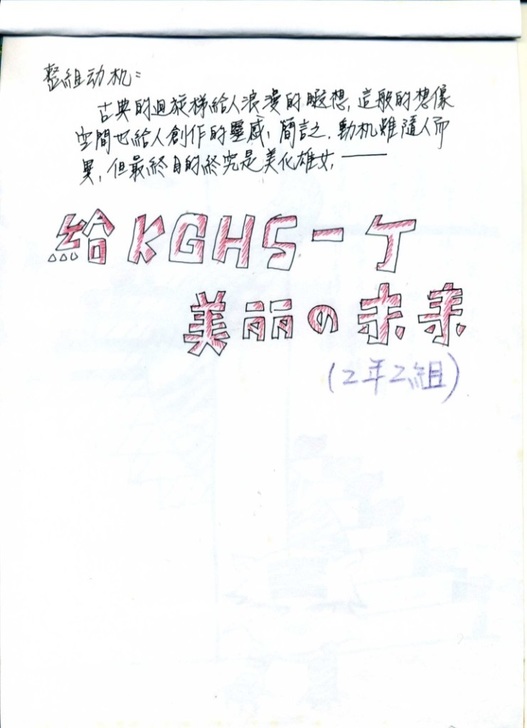 整組动机：
古典的迴旋梯給人浪漫的暇想，這般的想像
空間也給人創作的靈感，簡言之．動机雖隨人而
異，但最終目的終究是美化雄女，——
給KGHS一ケ
美丽の未来
(2年2組)